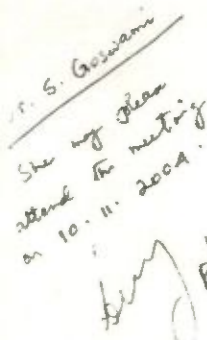 r. S. Goswami
She may please
attend the meeting
on 10.11.2004.